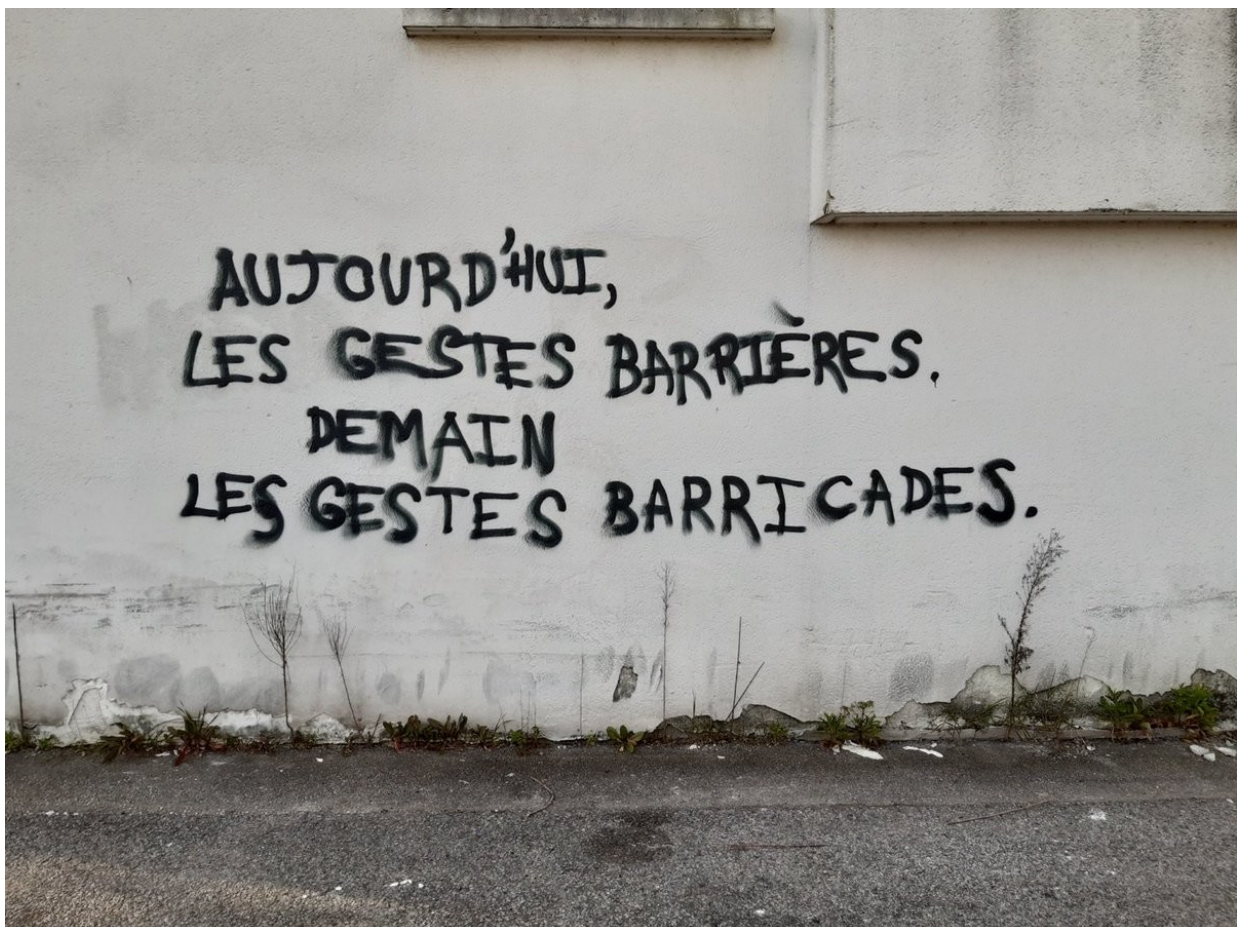 AUJOURD'HUI,
LES GESTES BARRIÈRES.
DEMAIN
LES GESTES BARRICADES.